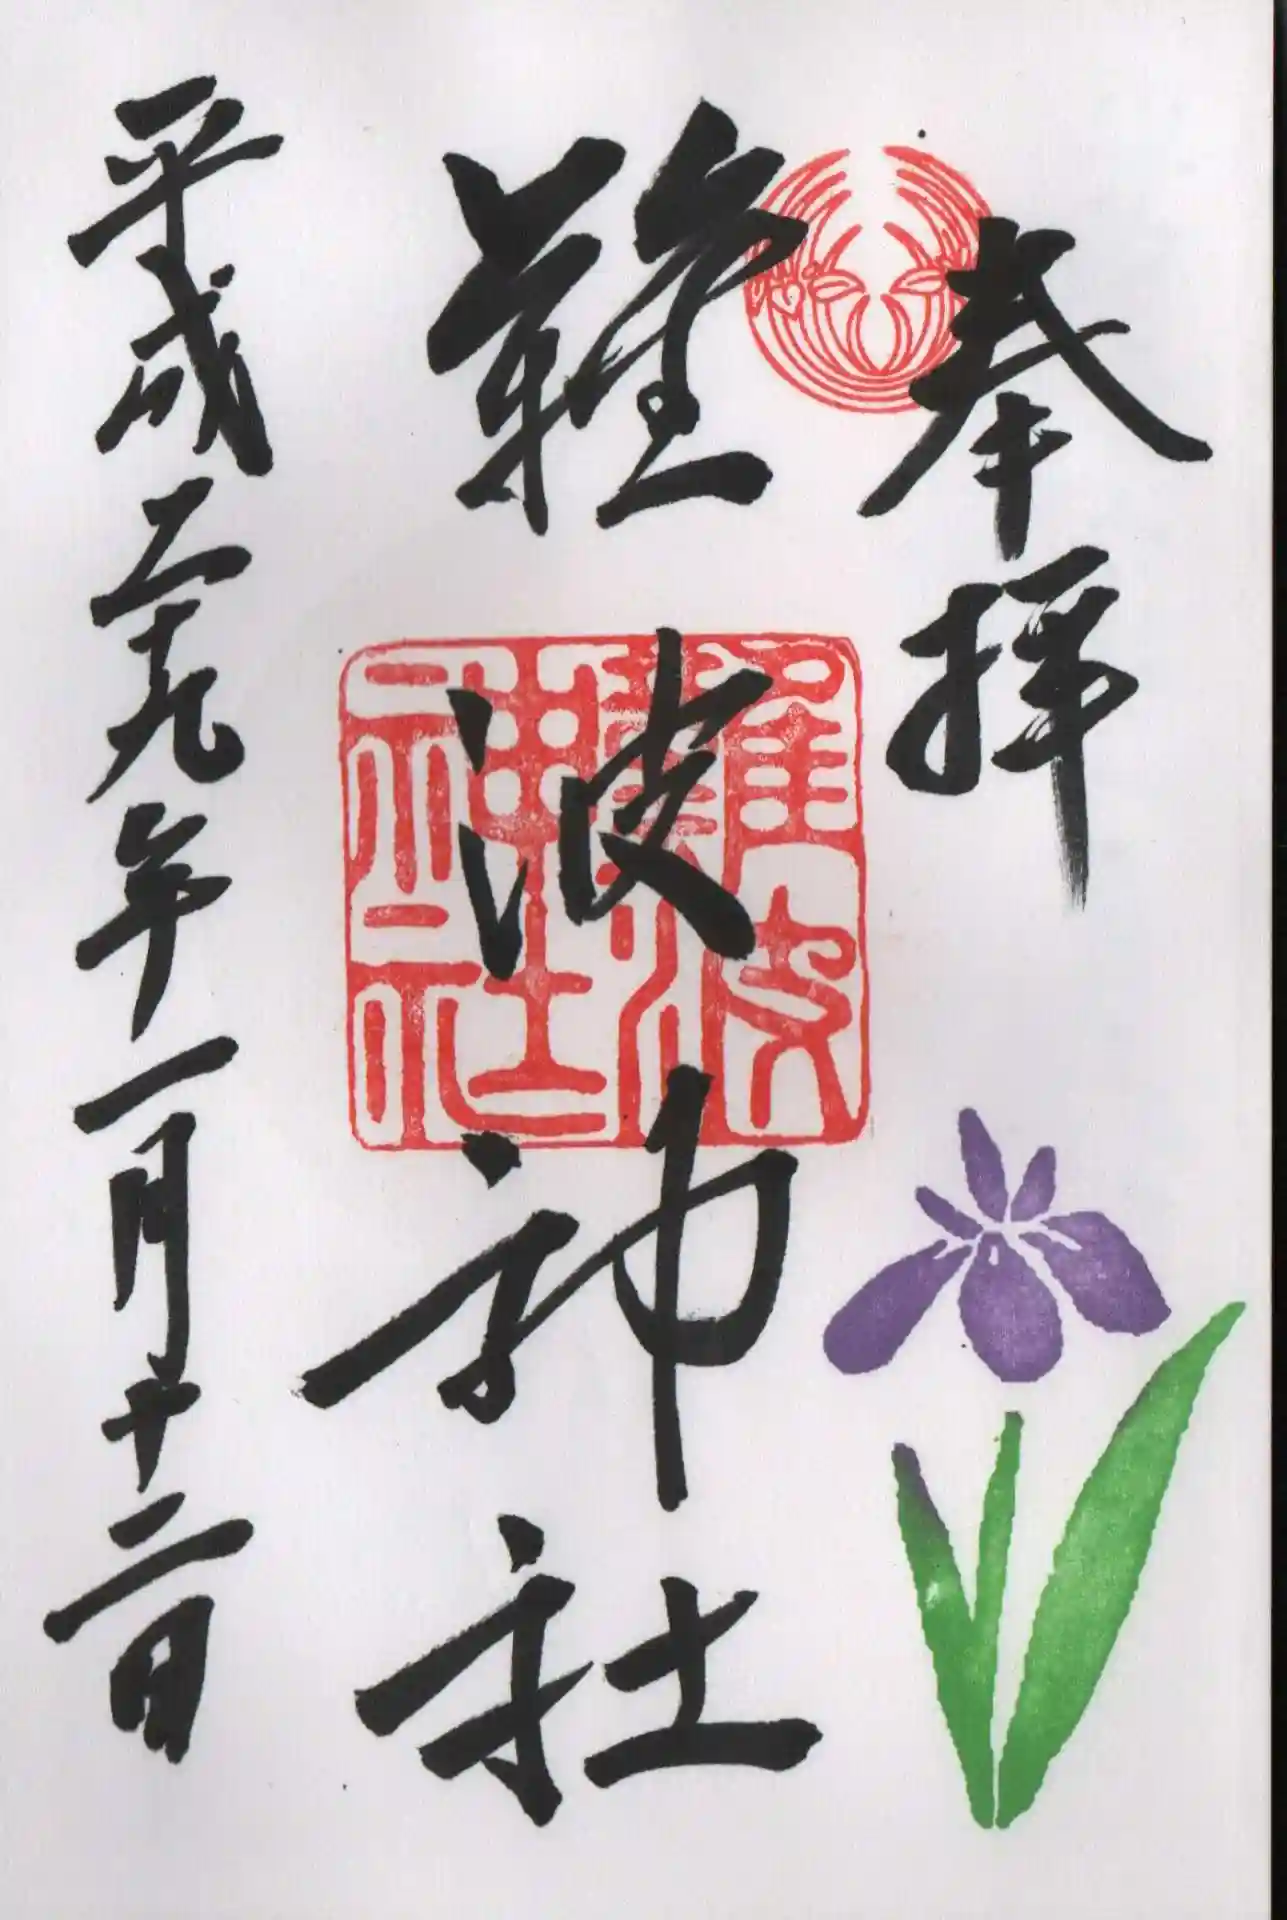 奉拝
難波神社
難波神社
平成二十九年一月十二日